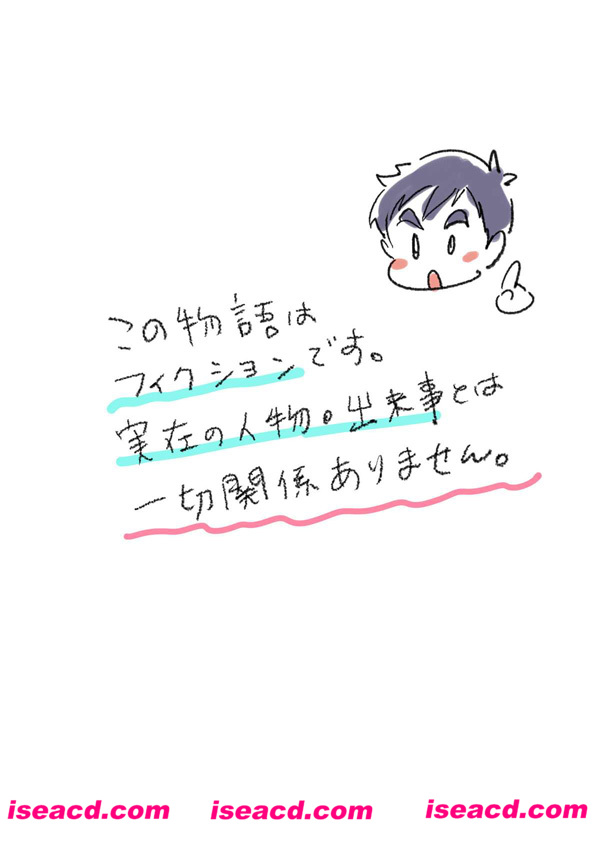 この物語は
フィクションです。
実在の人物。出来事とは
一切関係ありません。
iseacd.com iseacd.com iseacd.com